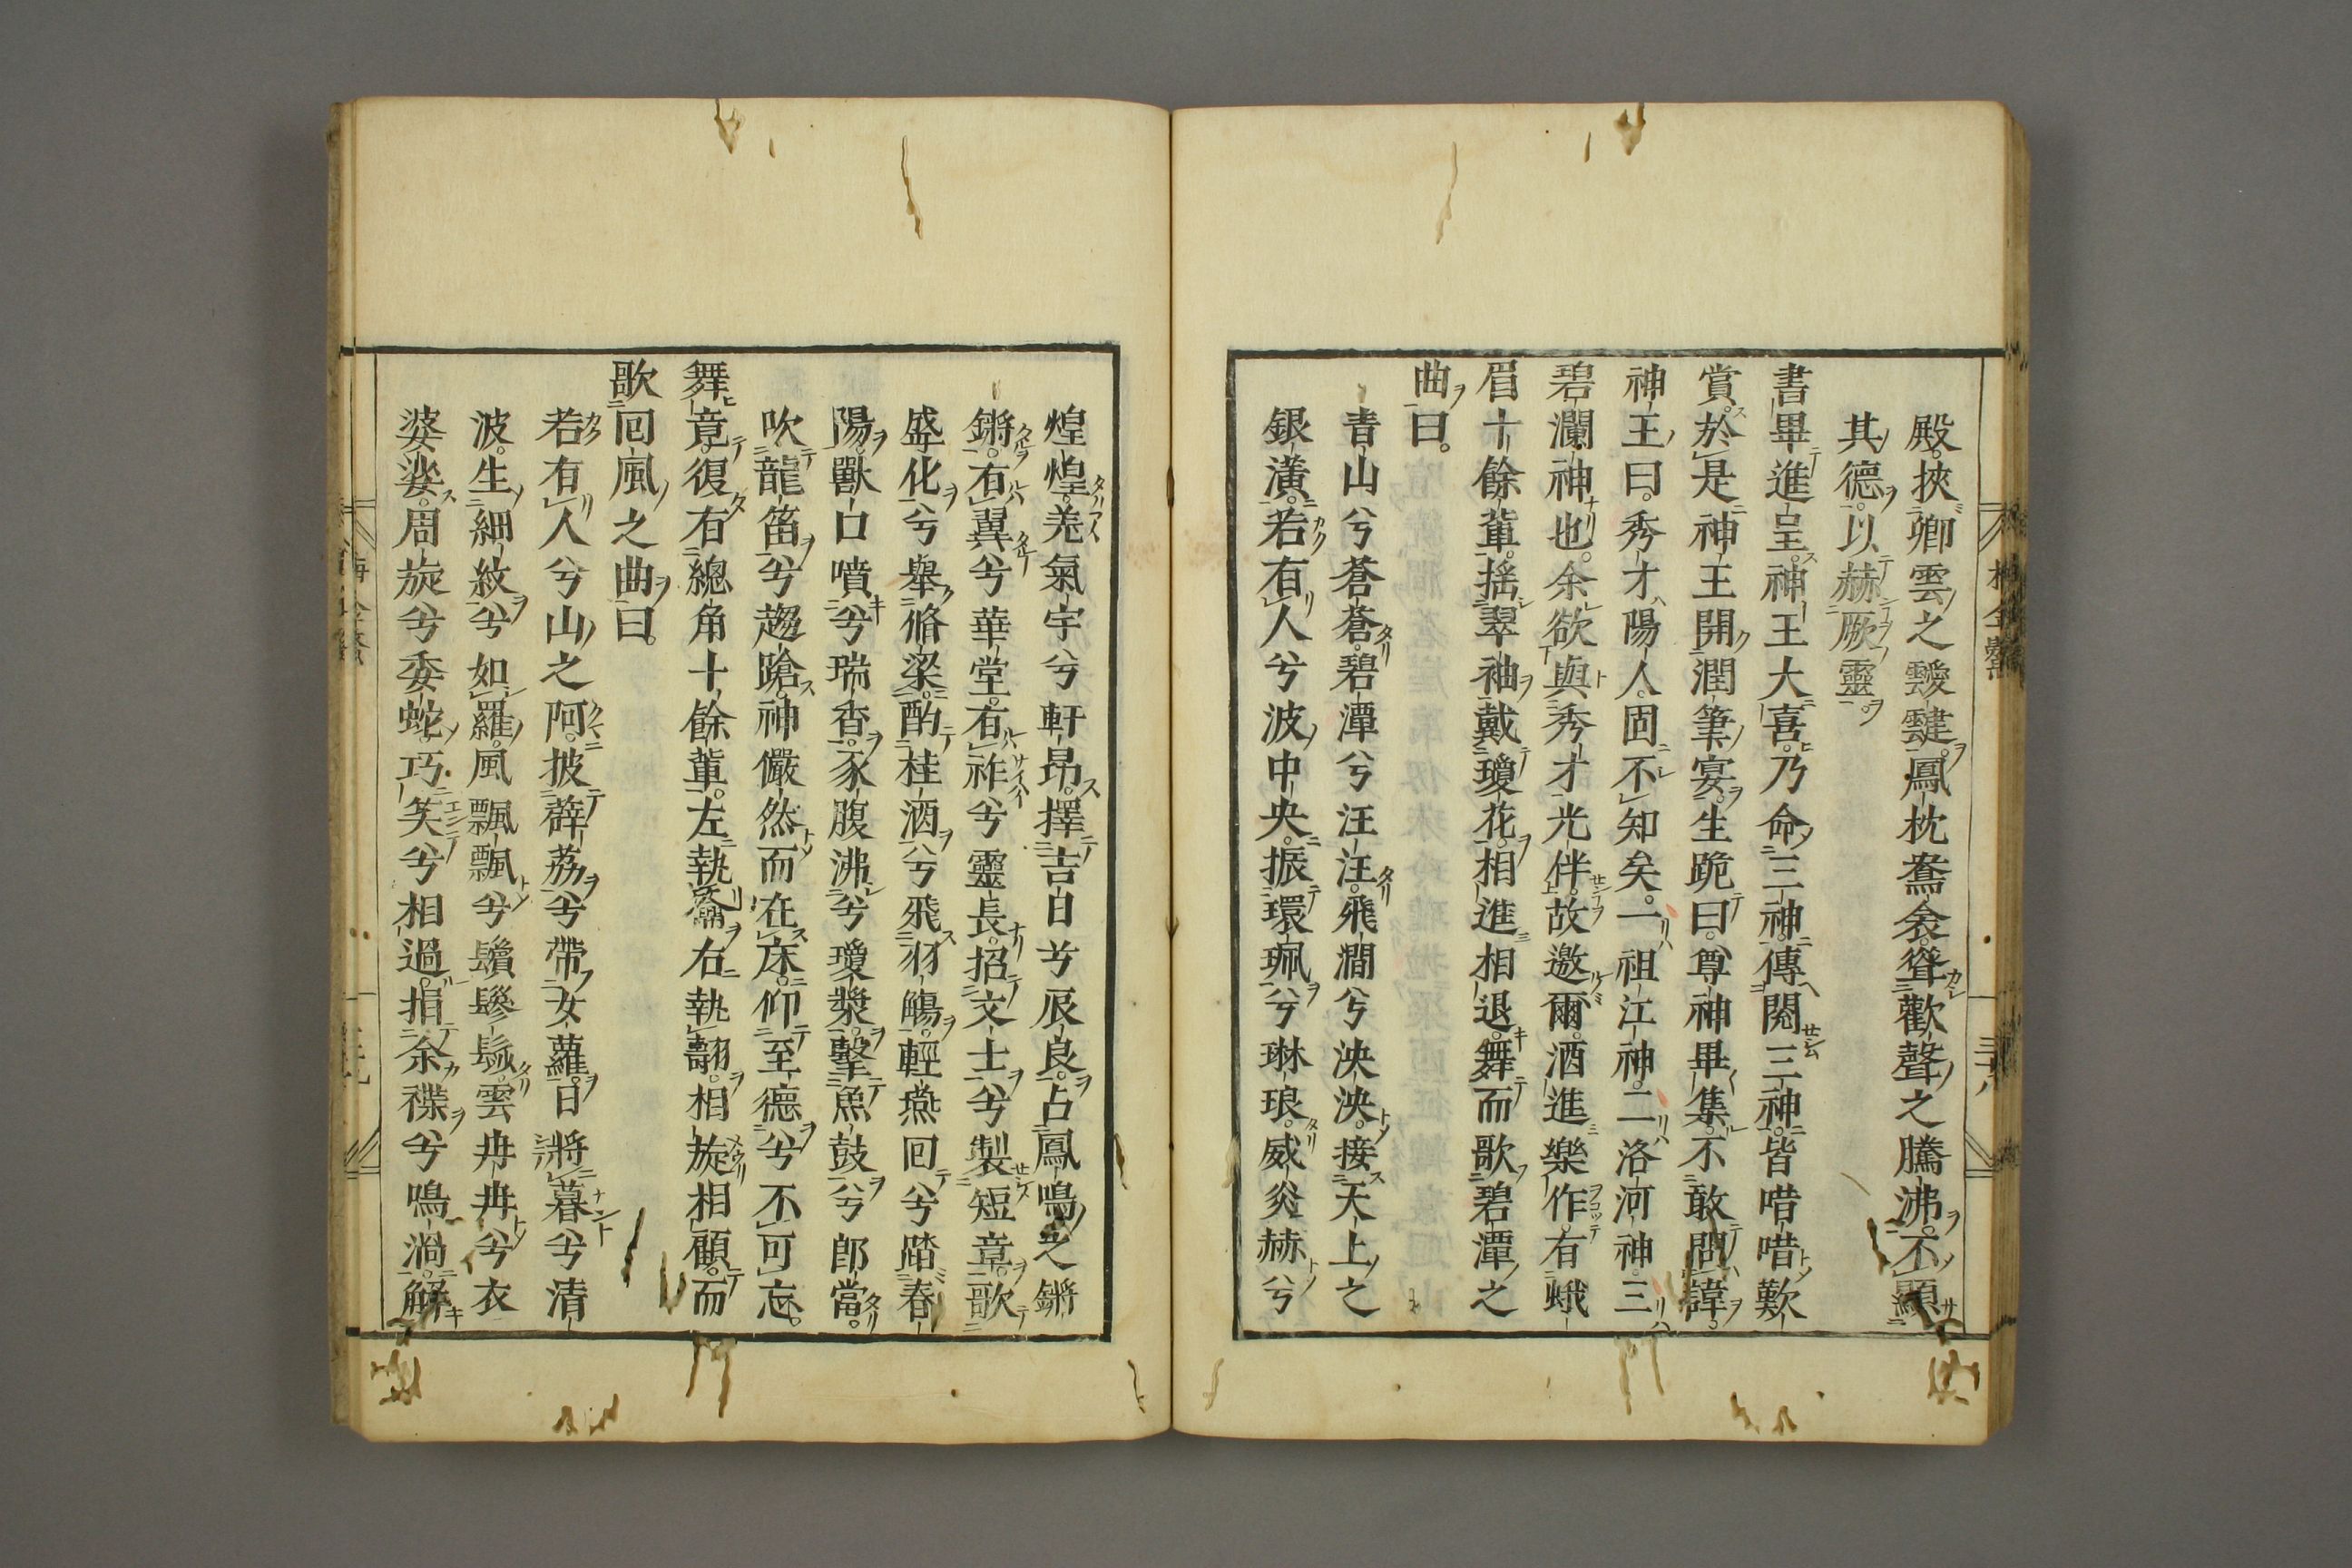 殿。挾卿雲之靉靆。鳳枕鴛衾。聳歡聲之騰沸。不顯
其德。以赫厥靈。
書畢進呈。神王大喜。乃命三神傳閱。三神皆唶唶歎
賞。於是神王開潤筆宴。生跪曰。尊神畢集。不敢問諱。
神王曰。秀才陽人。固不知矣。一祖江神。二洛河神。三
碧瀾神也。余欲與秀才光伴。故邀爾。酒進樂作。有蛾
眉十餘輩。搖翠袖戴瓊花。相進相退。舞而歌碧潭之
曲曰。
青山兮蒼蒼。碧潭兮汪汪。飛澗兮泱泱。接天上之
銀潢。若有人兮波中央。振環珮兮琳琅。威炎赫兮
煌煌。羌氣宇兮軒昂。擇吉日兮辰良。占鳳鳴之鏘
鏘。有翼兮華堂。有祚兮靈長。招文士兮製短章。歌
盛化兮舉脩梁。酌桂酒兮飛羽觴。輕燕回兮踏春
陽。獸口噴兮瑞香。豕腹沸兮瓊漿。擊魚鼓兮郎當。
吹龍笛兮趨蹌。神儼然而在床。仰至德兮不可忘。
舞竟。復有總角十餘輩。左執籥右執翿。相旋相顧。而
歌回風之曲曰。
若有人兮山之阿。披薜荔兮帶女蘿。日將暮兮清
波。生細紋兮如羅。風飄飄兮鬢鬖髿。雲冉冉兮衣
婆娑。周旋兮委蛇。巧笑兮相過。捐余褋兮鳴渦。解